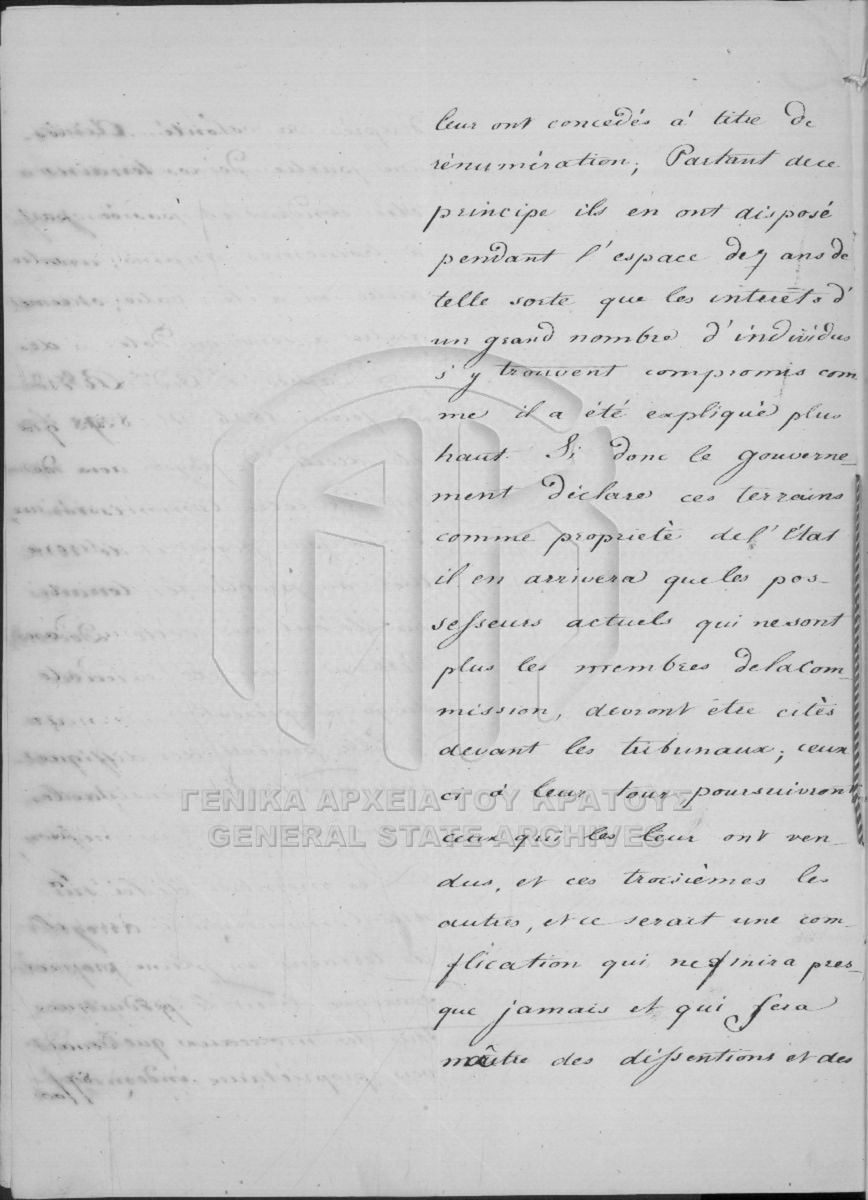 leur ont concedés à titre de
rénumération; Partant de ce
principe ils en ont disposé
pendant l'espace de 7 ans de
telle sorte que les interêts d'
un grand nombre d'individus
s'y trouvent compromis com
me il a été expliqué plus
haut. Si donc le gouverne-
ment déclare ces terrains
comme proprietè de l'État
il en arrivera que les pos-
sesseurs actuels qui ne sont
plus les membres de la com-
mission, devront être citès
devant les tribunaux; ceux
ci à leur tour poursuivront
ΓΕΝΙΚΑ ΑΡΧΕΙΑ ΤΟΥ ΚΡΑΤΟΥΣ
GENERAL STATE ARCHIVES
ceux qui les leur ont ven-
dus, et ces troisièmes les
autres, et ce serait une com-
plication qui ne finira pres-
que jamais et qui fera
naître des dissentions et des